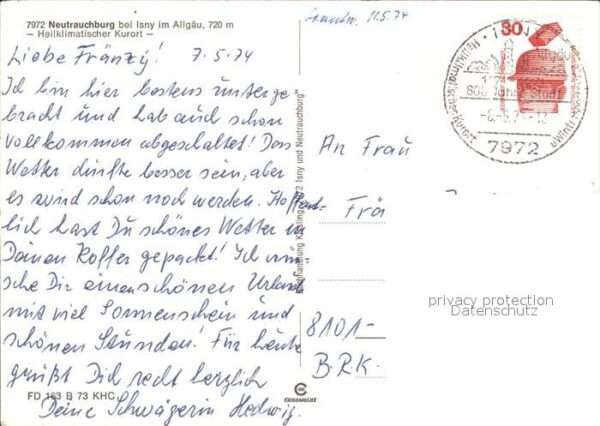 7972 Neutrauchburg bei Isny im Allgäu, 720 m
— Heilklimatischer Kurort —
11.5.74
Liebe Fränzy! 7.5.74
Ich bin hier bestens unterge-
bracht und hab auch schon
vollkommen abgeschaltet! Das
Wetter dürfte besser sein, aber
es wird schon noch werden. Hoffent-
lich hast Du schönes Wetter in
Deinen Koffer gepackt! Ich wün-
sche Dir einen schönen Urlaub
mit viel Sonnenschein und
schönen Stunden! Für heute
grüßt Dich recht herzlich
Deine Schwägerin Hedwig.
FD 163 B 73 KHC
Isny und Neutrauchburg
CEKUMULUX
30
ISNY
Allgäu
800 Jahre Stadt
Heilklimatischer Kurort
7972
An Frau
Frä
8101-
B.R.K.
privacy protection
Datenschutz